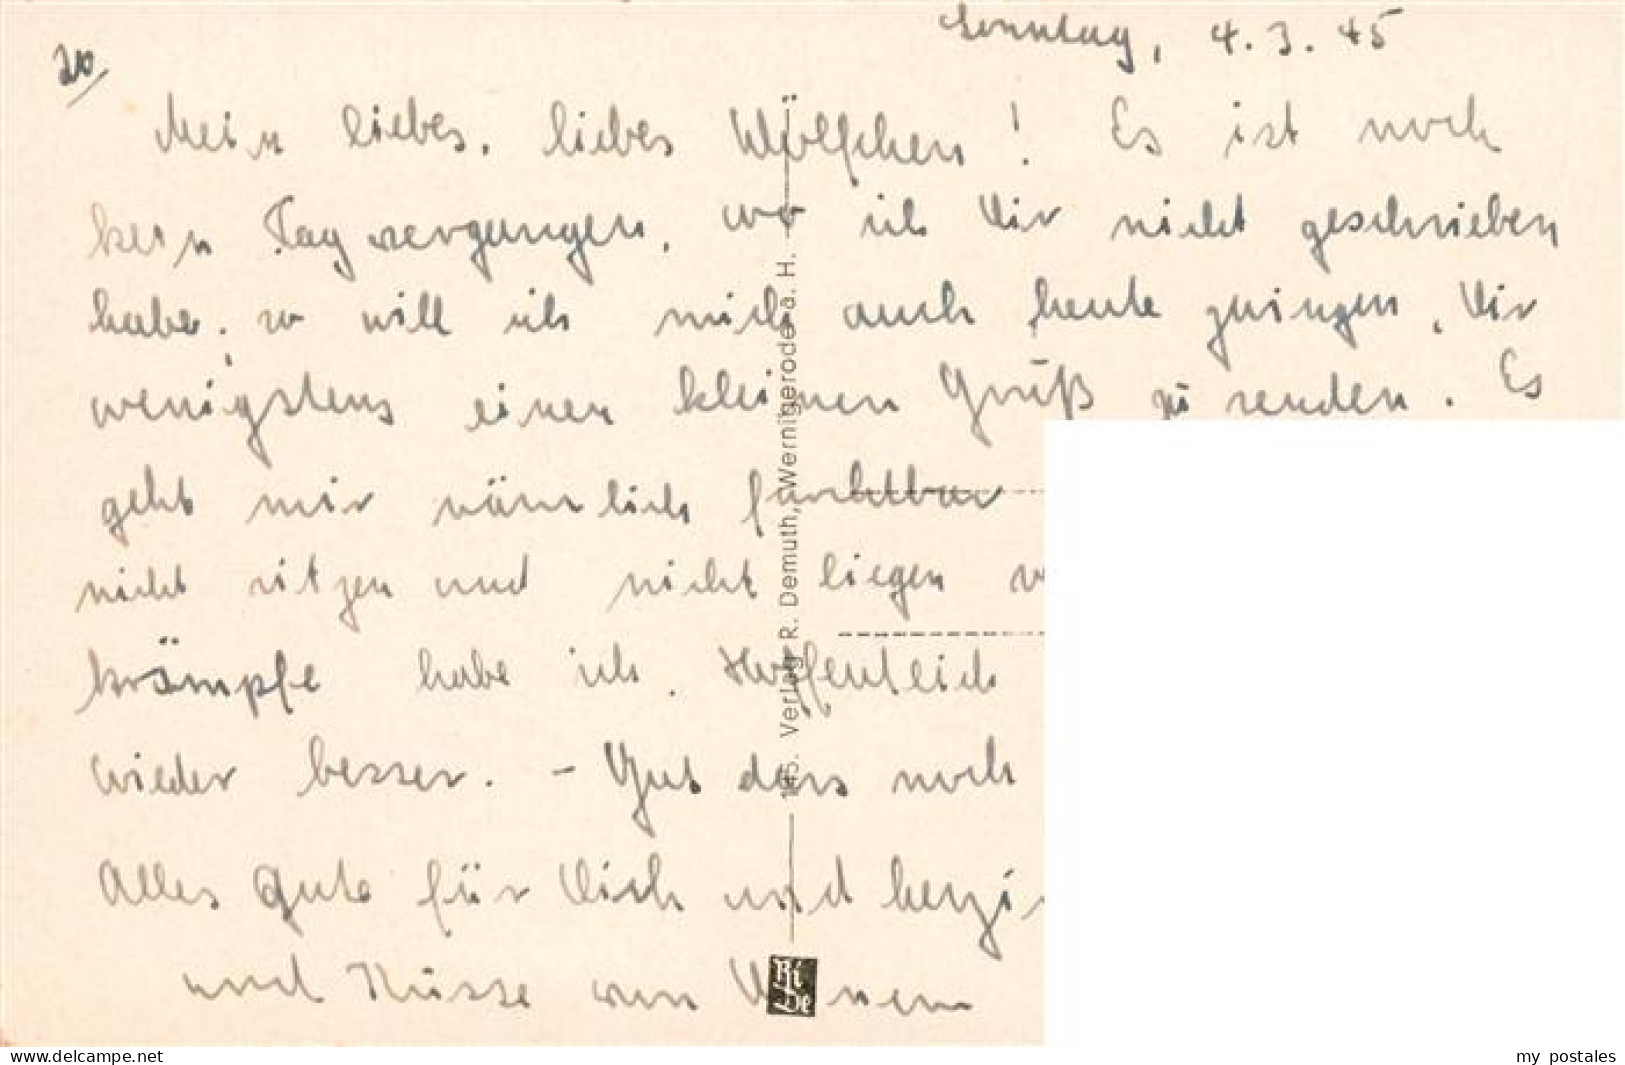 Sonntag, 4.3.45
20
Mein liebes, liebes Wölfchen! Es ist noch
kein Tag vergangen, wo ich Dir nicht geschrieben
habe. so will ich mich auch heute zwingen, Dir
wenigstens einen kleinen Gruß zu senden. Es
geht mir nämlich furchtbar
nicht sitzen und nicht liegen v
krämpfe habe ich. Hoffentlich
wieder besser. - Gut dass noch
Alles Gute für Dich und herzi
und Küsse von Deinem
145. Verlag R. Demuth, Wernigerode a. H.
Ri
De
www.delcampe.net
my_postales